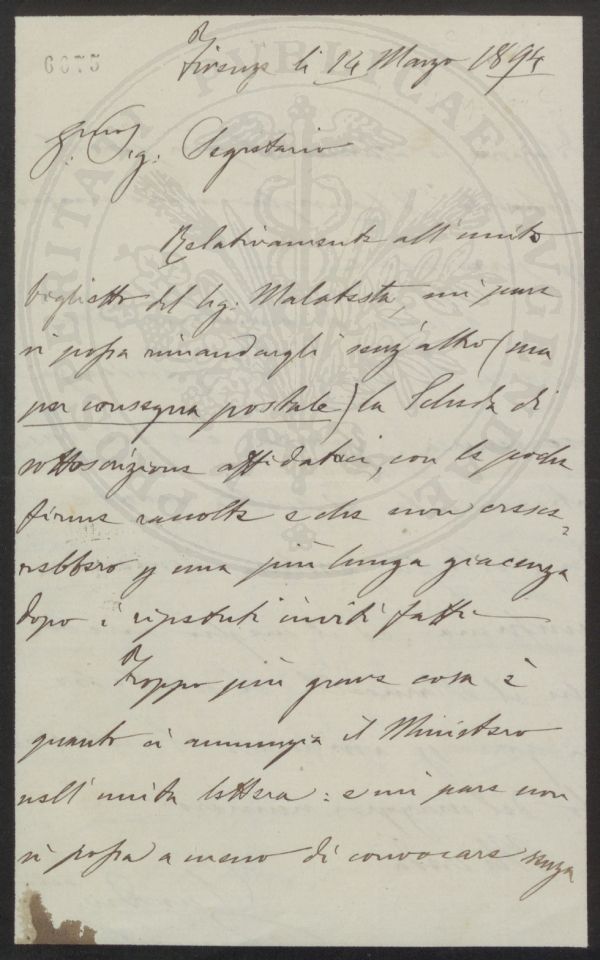 6075
Firenze li 14 Marzo 1894
Sig: Segretario
Relativamente all'unito
biglietto del Sig: Malatesta, mi pare
si possa rimandargli senz'altro (ma
per consegna postale) la Scheda di
sottoscrizione affidataci, con le poche
firme raccolte e che non cresce=
rebbero p una più lunga giacenza
dopo i ripetuti inviti fatti
Troppo più grave cosa è
quanto ci annunzia il Ministero
nell'unita lettera: e mi pare non
si possa a meno di convocare senza
PROSPERITATI PUBLICAE AUGENDAE